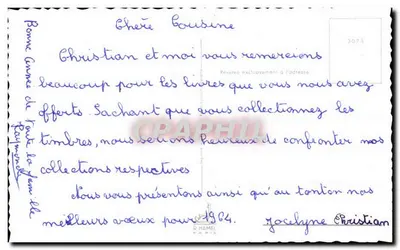 Chère Cousine
Christian et moi vous remercions
beaucoup pour les livres que vous nous avez
offerts. Sachant que vous collectionnez les
timbres, nous serions heureux de confronter nos
collections respectives
Nous vous présentons ainsi qu'au tonton nos
meilleurs vœux pour 1964. Jocelyne Christian
Bonne année de toute la famille
Raymonde
CPAPHIL
PARIS